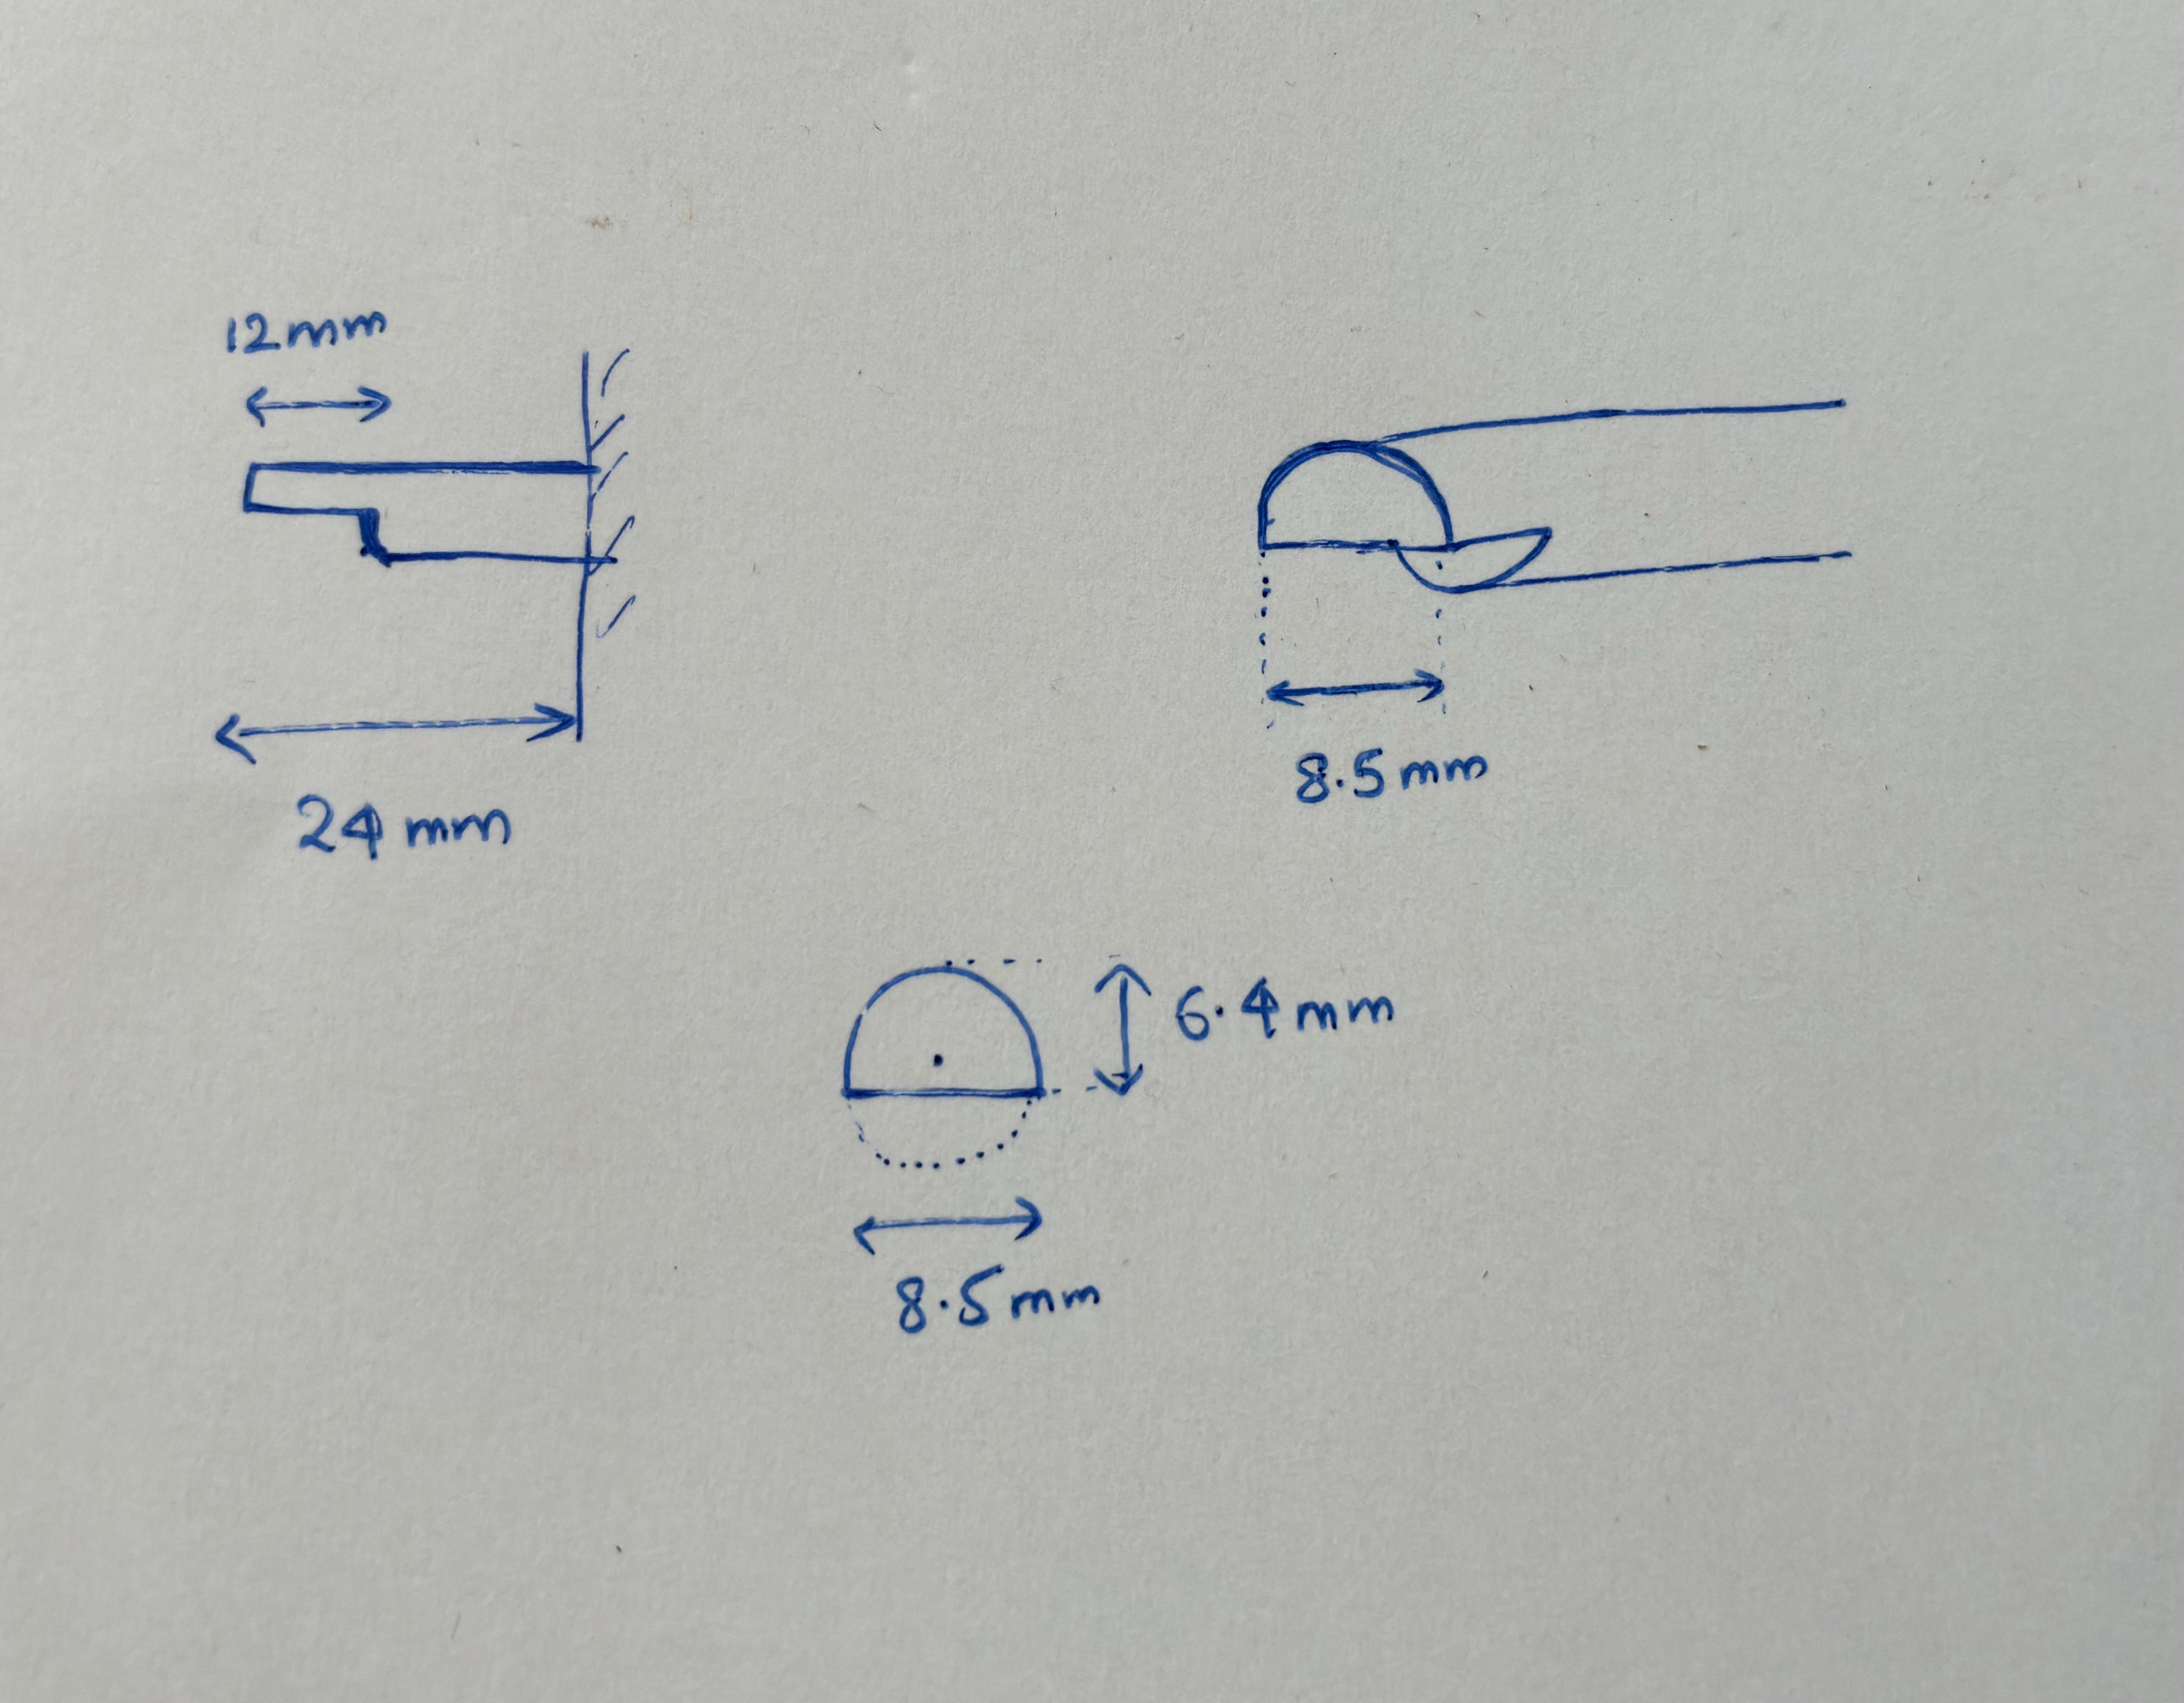 12mm
24 mm
8.5 mm
6.4 mm
8.5 mm